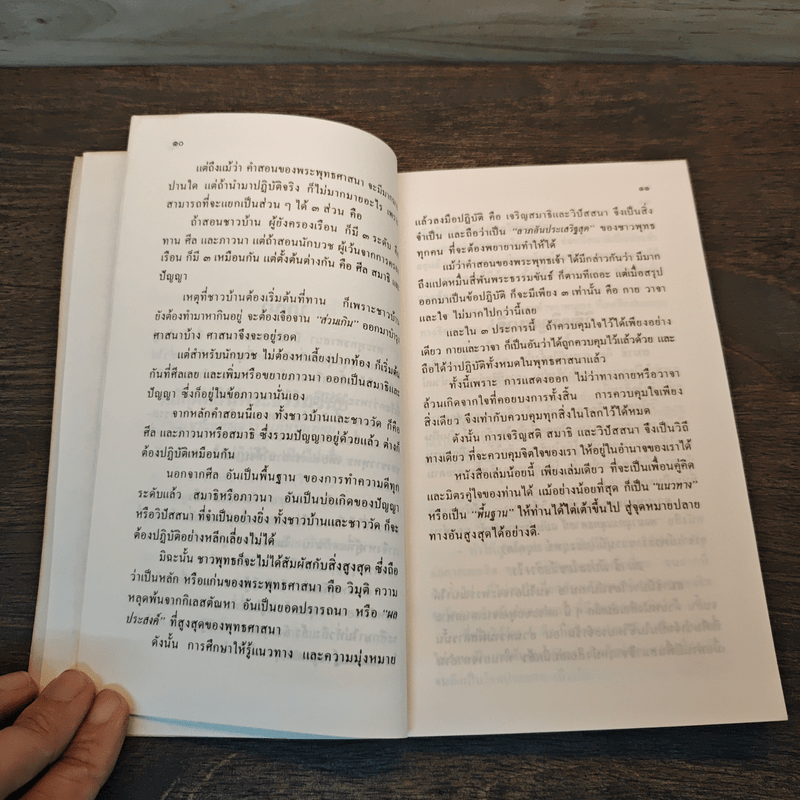 ๑๐
แต่ถึงแม้ว่า คำสอนของพระพุทธศาสนา จะมีมากมาย
ปานใด แต่ถ้านำมาปฏิบัติจริง ก็ไม่มากมายอะไร
สามารถที่จะแยกเป็นส่วน ๆ ได้ ๓ ส่วน คือ
ถ้าสอนชาวบ้าน ผู้ยังครองเรือน ก็มี ๓ ระดับ
ทาน ศีล และภาวนา แต่ถ้าสอนนักบวช ผู้เว้นจากการ
เรือน ก็มี ๓ เหมือนกัน แต่ตั้งต้นต่างกัน คือ ศีล สมาธิ
ปัญญา
เหตุที่ชาวบ้านต้องเริ่มต้นที่ทาน ก็เพราะชาวบ้าน
ยังต้องทำมาหากินอยู่ จะต้องเจือจาน "ส่วนเกิน" ออกมา
ศาสนาบ้าง ศาสนาจึงจะอยู่รอด
แต่สำหรับนักบวช ไม่ต้องหาเลี้ยงปากท้อง ก็เริ่มต้น
กันที่ศีลเลย และเพิ่มหรือขยายภาวนา ออกเป็นสมาธิและ
ปัญญา ซึ่งก็อยู่ในข้อภาวนานั่นเอง
จากหลักคำสอนนี้เอง ทั้งชาวบ้านและชาววัด ก็คือ
ศีล และภาวนาหรือสมาธิ ซึ่งรวมปัญญาอยู่ด้วยแล้ว ต่างก็
ต้องปฏิบัติเหมือนกัน
นอกจากศีล อันเป็นพื้นฐาน ของการทำความดีทุก
ระดับแล้ว สมาธิหรือภาวนา อันเป็นบ่อเกิดของปัญญา
หรือวิปัสสนา ที่จำเป็นอย่างยิ่ง ทั้งชาวบ้านและชาววัด ก็จะ
ต้องปฏิบัติอย่างหลีกเลี่ยงไม่ได้
มิฉะนั้น ชาวพุทธก็จะไม่ได้สัมผัสกับสิ่งสูงสุด ซึ่งถือ
ว่าเป็นหลัก หรือแก่นของพระพุทธศาสนา คือ วิมุติ ความ
หลุดพ้นจากกิเลสตัณหา อันเป็นยอดปรารถนา หรือ "ผล
ประสงค์" ที่สูงสุดของพุทธศาสนา
ดังนั้น การศึกษาให้รู้แนวทาง และความมุ่งหมาย
๑๑
แล้วลงมือปฏิบัติ คือ เจริญสมาธิและวิปัสสนา จึงเป็นสิ่ง
จำเป็น และถือว่าเป็น "ลาภอันประเสริฐสุด" ของชาวพุทธ
ทุกคน ที่จะต้องพยายามทำให้ได้
แม้ว่าคำสอนของพระพุทธเจ้า ได้มีกล่าวกันว่า มีมาก
ถึงแปดหมื่นสี่พันพระธรรมขันธ์ ก็ตามทีเถอะ แต่เมื่อสรุป
ออกมาเป็นข้อปฏิบัติ ก็จะมีเพียง ๓ เท่านั้น คือ กาย วาจา
และใจ ไม่มากไปกว่านี้เลย
และใน ๓ ประการนี้ ถ้าควบคุมใจไว้ได้เพียงอย่าง
เดียว กายและวาจา ก็เป็นอันว่าได้ถูกควบคุมไว้แล้วด้วย และ
ถือได้ว่าปฏิบัติทั้งหมดในพุทธศาสนาแล้ว
ทั้งนี้เพราะ การแสดงออก ไม่ว่าทางกายหรือวาจา
ล้วนเกิดจากใจที่คอยบงการทั้งสิ้น การควบคุมใจเพียง
สิ่งเดียว จึงเท่ากับควบคุมทุกสิ่งในโลกไว้ได้หมด
ดังนั้น การเจริญสติ สมาธิ และวิปัสสนา จึงเป็นวิถี
ทางเดียว ที่จะควบคุมจิตใจของเรา ให้อยู่ในอำนาจของเราได้
หนังสือเล่มน้อยนี้ เพียงเล่มเดียว ที่จะเป็นเพื่อนคู่คิด
และมิตรคู่ใจของท่านได้ แม้อย่างน้อยที่สุด ก็เป็น "แนวทาง"
หรือเป็น "พื้นฐาน" ให้ท่านได้ไต่เต้าขึ้นไป สู่จุดหมายปลาย
ทางอันสูงสุดได้อย่างดี.